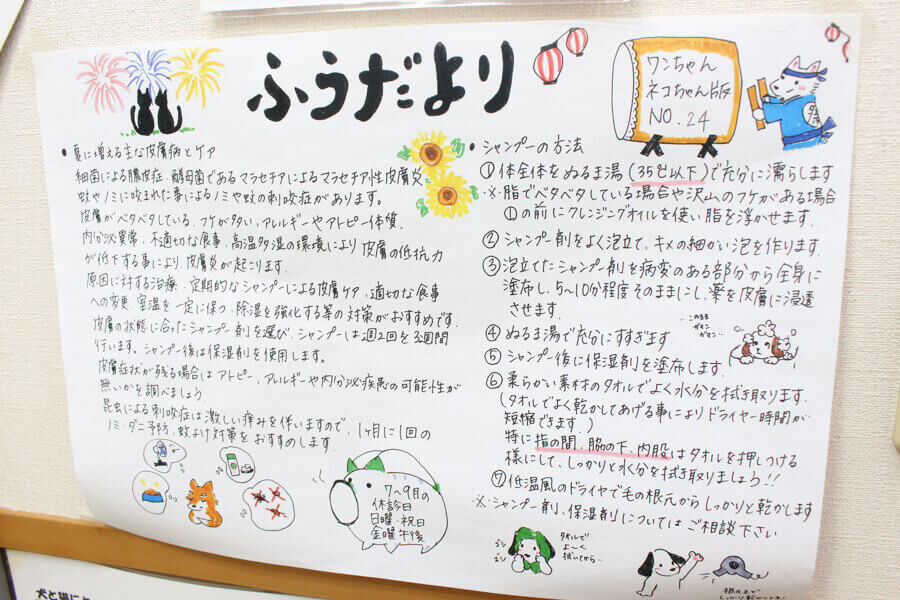 ふうだより
ワンちゃん
ネコちゃん版
NO.24
• 夏に増える主な皮膚病とケア
細菌による膿皮症、酵母菌であるマラセチアによるマラセチア性皮膚炎
蚊やノミに咬まれた事によるノミや蚊の刺咬症があります。
皮膚がベタベタしている、フケが多い、アレルギーやアトピー体質、
内分泌異常、不適切な食事、高温多湿の環境により皮膚の低抗力
が低下する事により、皮膚炎が起こります。
原因に対する治療、定期的なシャンプーによる皮膚ケア、適切な食事
への変更、室温を一定に保つ、除湿を強化する等の対策がおすすめです。
皮膚の状態に合ったシャンプー剤を選び、シャンプーは週2回を3週間
行います。シャンプー後は保湿剤を使用します。
皮膚症状が残る場合はアトピー、アレルギーや内分泌疾患の可能性が
無いかを調べましょう
昆虫による刺咬症は激しい痒みを伴いますので、1ヶ月に1回の
ノミ・ダニ予防、蚊よけ対策をおすすめします.
7〜9月の
休診日
日曜・祝日
金曜午後
• シャンプーの方法
①体全体をぬるま湯(35℃以下)で充分に濡らします
※脂でベタベタしている場合や沢山のフケがある場合
①の前にクレンジングオイルを使い脂を浮かせます.
②シャンプー剤をよく泡立て、キメの細かい泡を作ります.
③泡立てたシャンプー剤を病変のある部分から全身に
塗布し、5〜10分程度そのままにし、薬を皮膚に浸透
させます.
④ぬるま湯で充分にすすぎます
⑤シャンプー後に保湿剤を塗布します.
このまま
ガマン
ガマン…
⑥柔らかい素材のタオルでよく水分を拭き取ります.
(タオルでよく乾かしてあげる事によりドライヤー時間が
短縮できます.)
特に指の間、脇の下、内股はタオルを押しつける
様にして、しっかりと水分を拭き取りましょう!!
⑦低温風のドライヤで毛の根元からしっかりと乾かします
※シャンプー剤、保湿剤についてはご相談下さい
ゴシ
ゴシ
タオルで
よ〜く
拭いてから…
根元まで